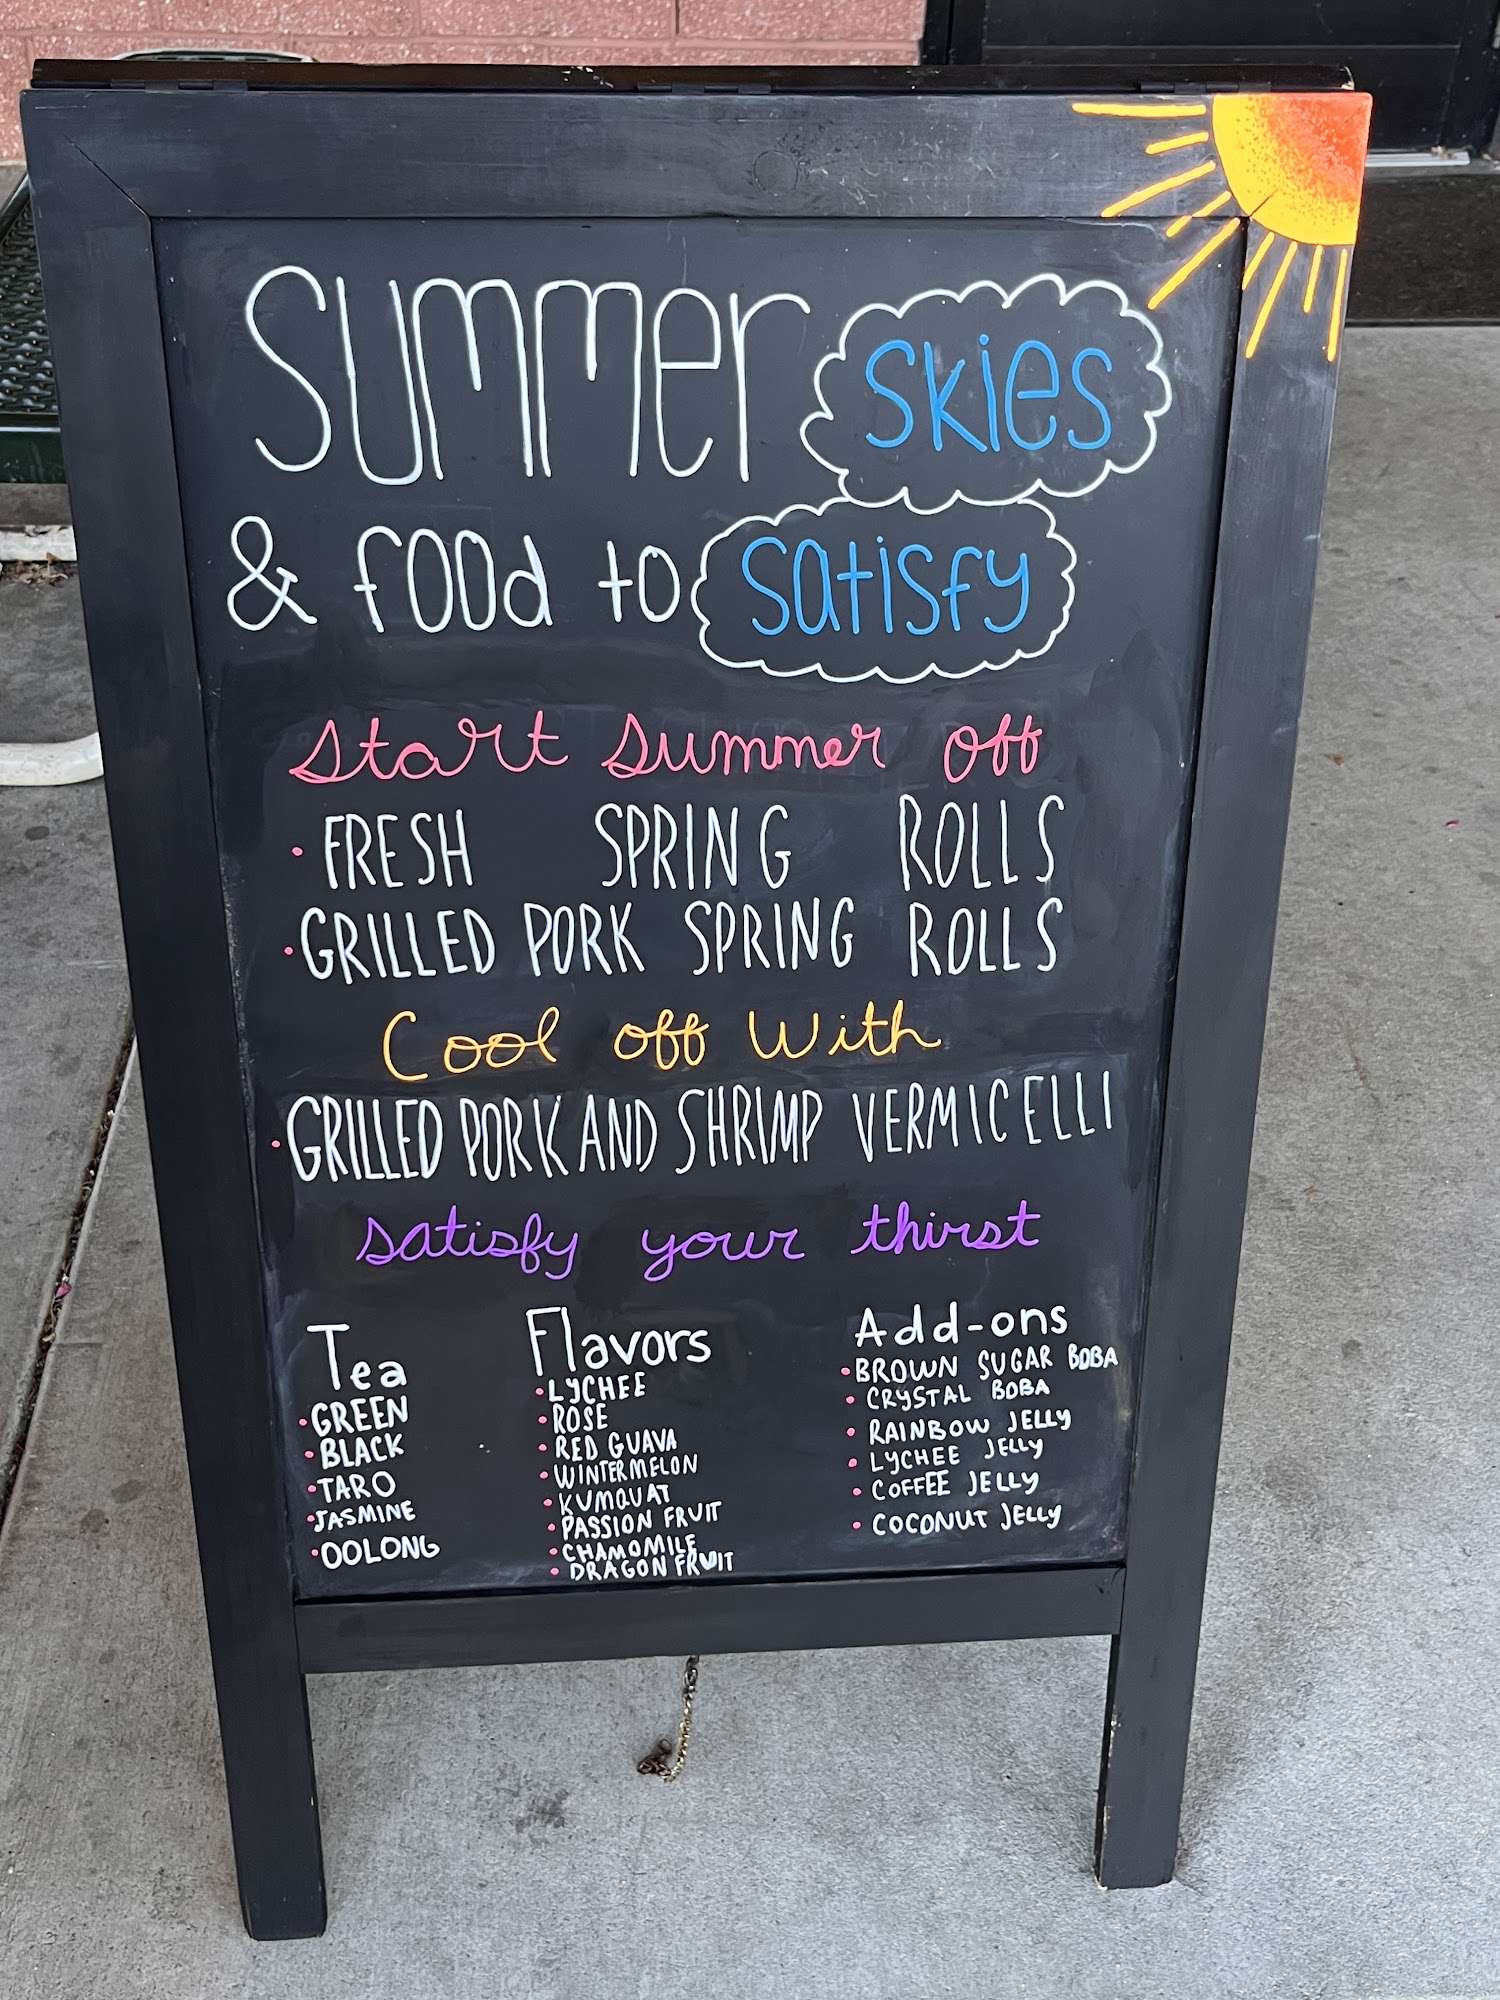 Summer skies
& food to satisfy
Start Summer off
• FRESH SPRING ROLLS
• GRILLED PORK SPRING ROLLS
Cool off With
• GRILLED PORK AND SHRIMP VERMICELLI
satisfy your thirst
Tea
• GREEN
• BLACK
• TARO
• JASMINE
• OOLONG
Flavors
• LYCHEE
• ROSE
• RED GUAVA
• WINTERMELON
• KUMQUAT
• PASSION FRUIT
• CHAMOMILE
• DRAGON FRUIT
Add-ons
• BROWN SUGAR BOBA
• CRYSTAL BOBA
• RAINBOW JELLY
• LYCHEE JELLY
• COFFEE JELLY
• COCONUT JELLY